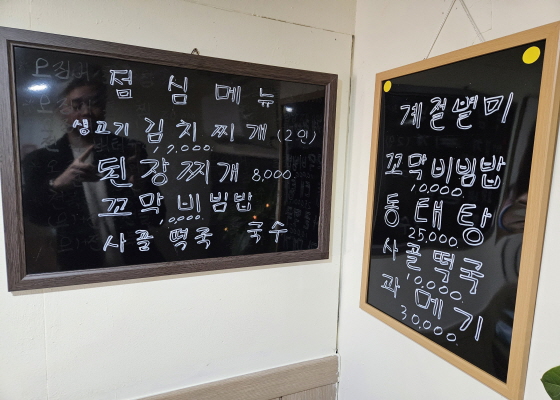 점심메뉴
생고기 김치찌개 (2인)
17,000.
된장찌개 8,000.
꼬막비빔밥
10,000.
사골떡국 국수
계절별미
꼬막비빔밥
10,000.
동태탕
25,000.
사골떡국
10,000.
과메기
30,000.